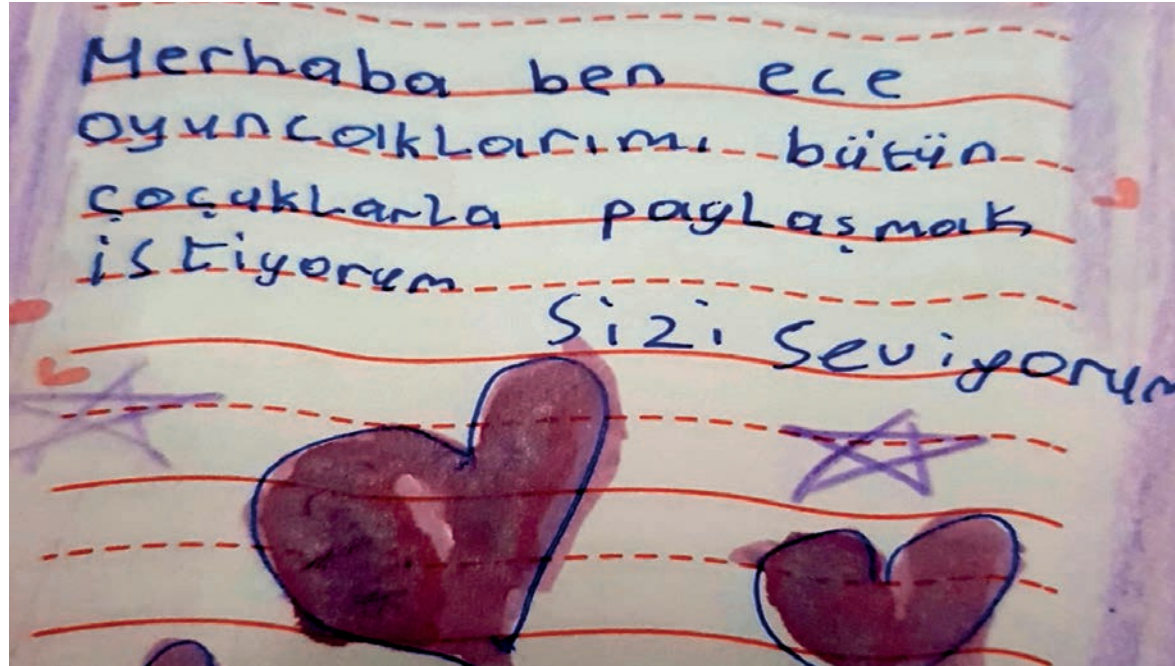 Merhaba ben ece
oyuncaklarımı bütün
çoçuklarla paylaşmak
istiyorum
Sizi Seviyorum